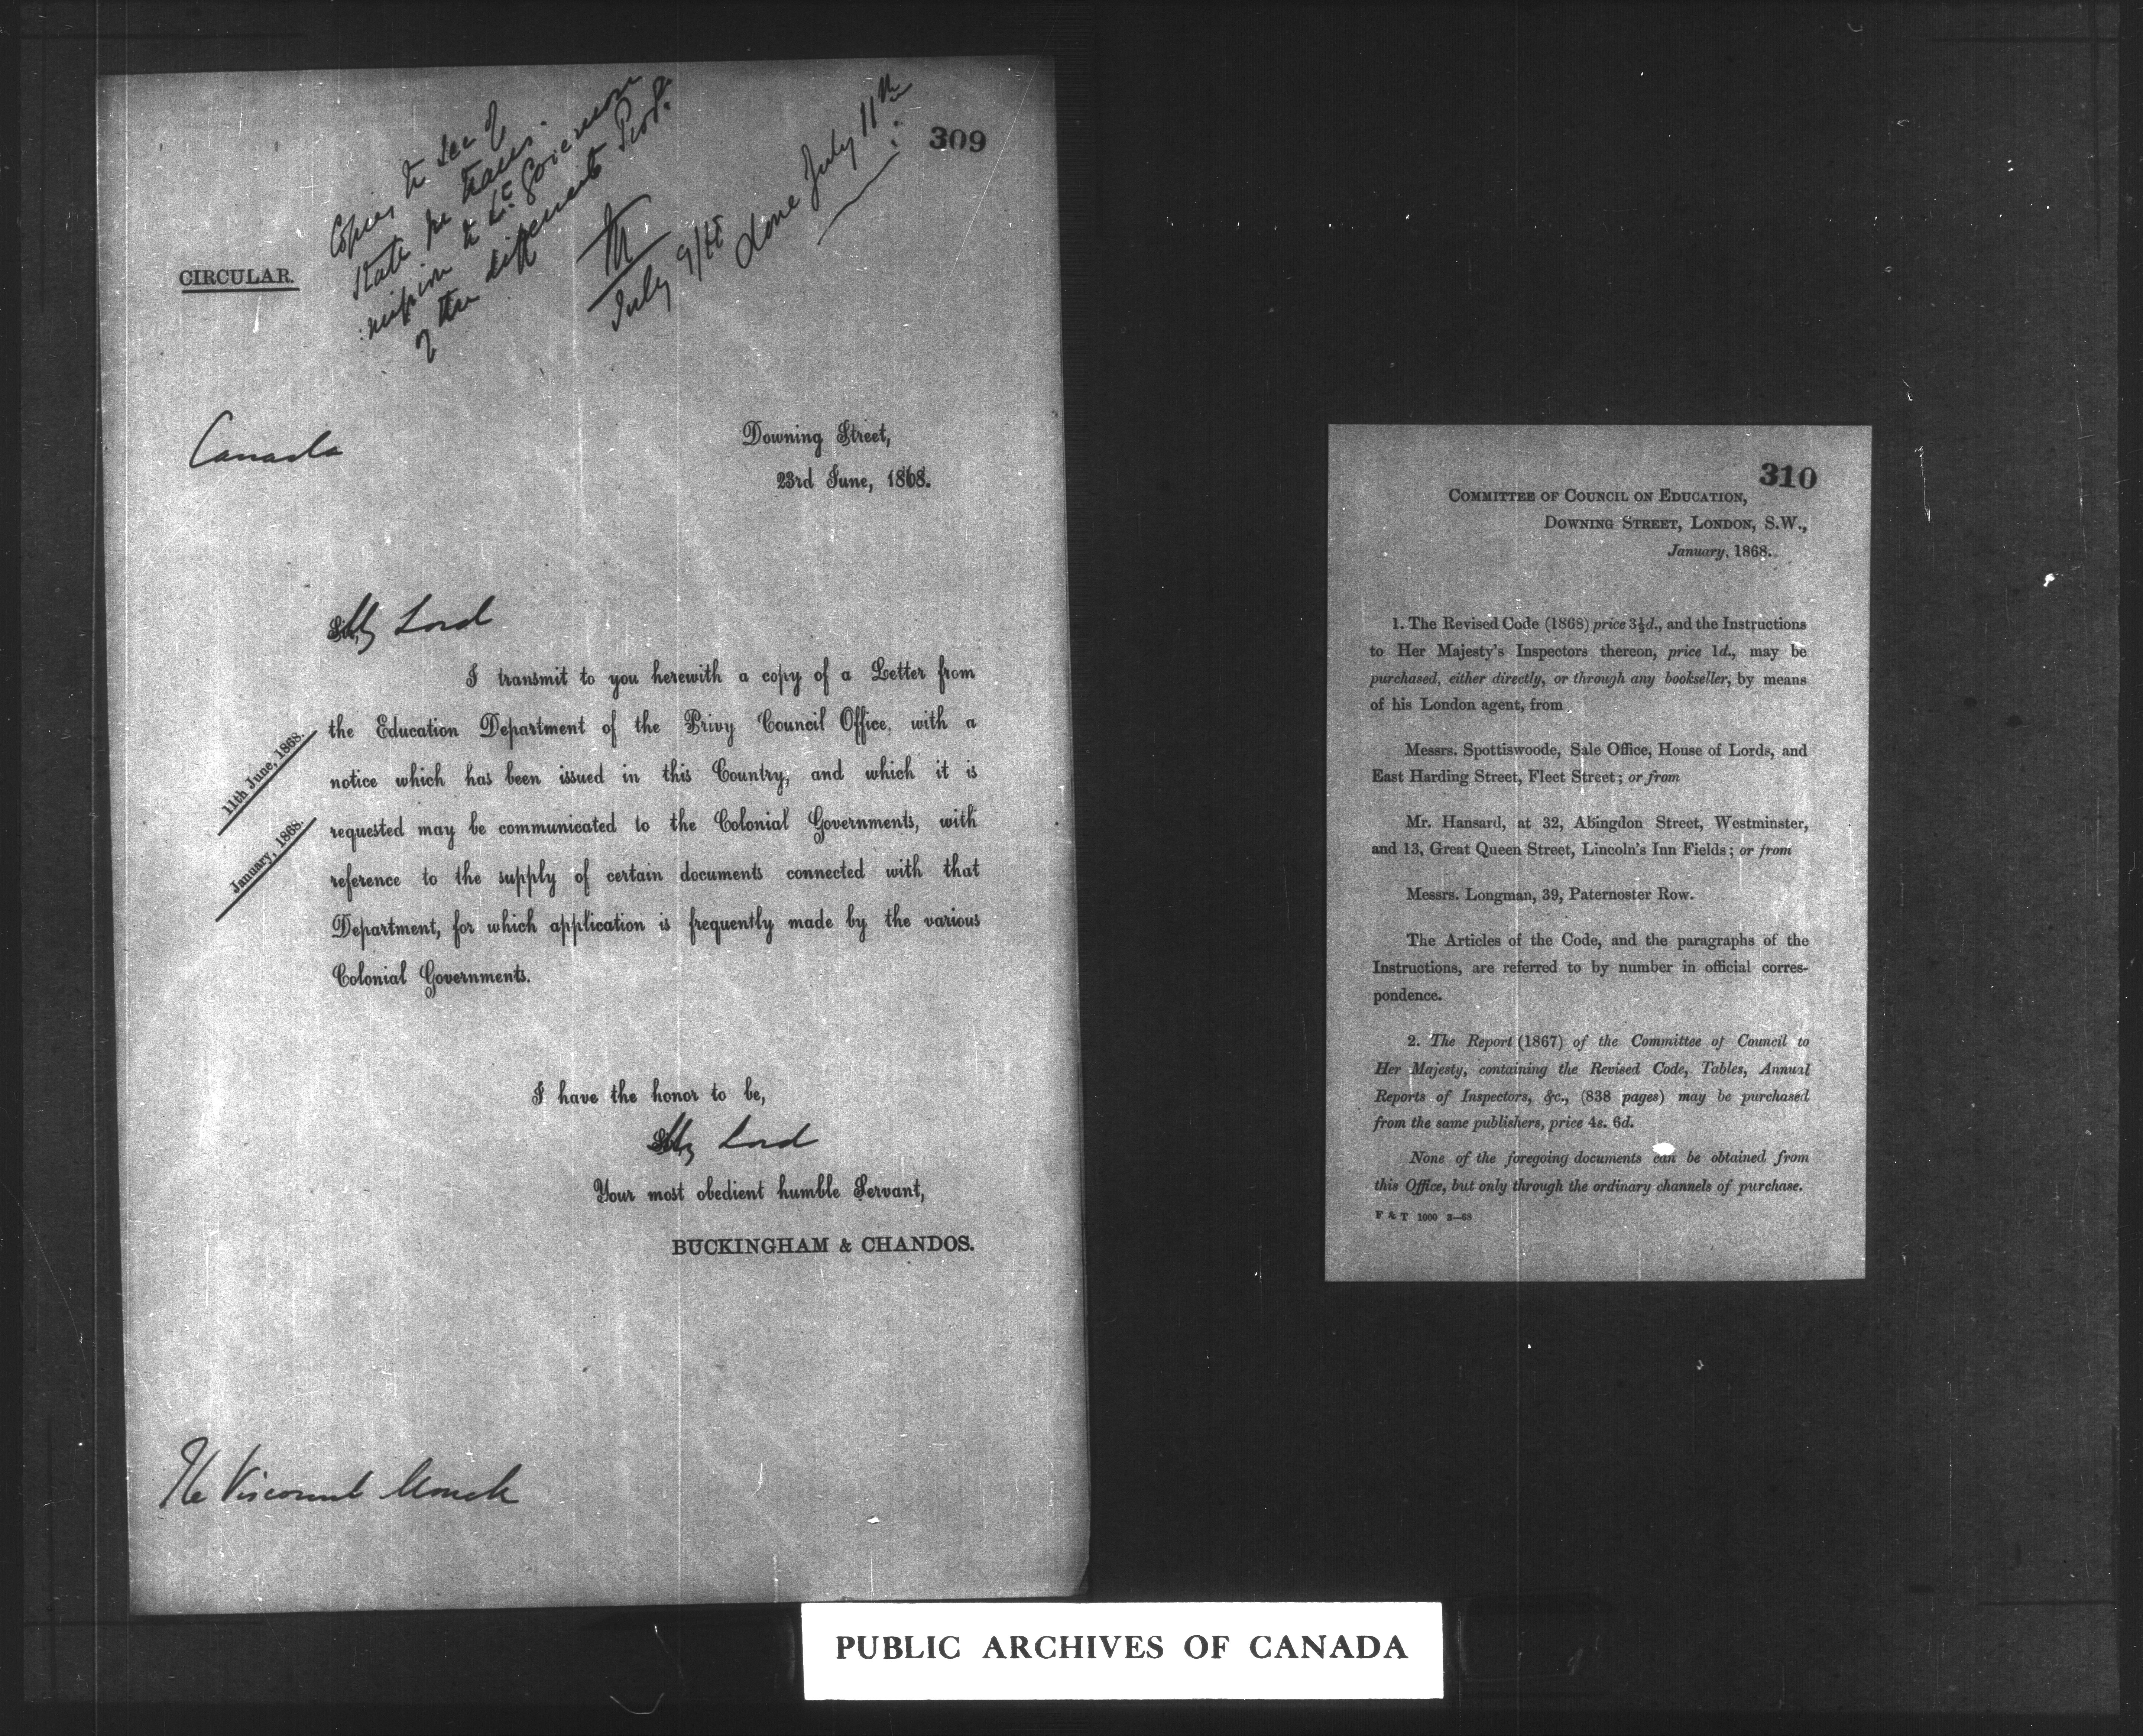 309
Copies to Sec of
State for trans:
:mission to Lt. Governors
of the different Prov.
July 9/68
done July 11th
CIRCULAR.
Canada
Downing Street,
23rd June, 1868.
My Lord
I transmit to you herewith a copy of a Letter from
the Education Department of the Privy Council Office, with a
11th June, 1868.
notice which has been issued in this Country, and which it is
requested may be communicated to the Colonial Governments, with
January, 1868.
reference to the supply of certain documents connected with that
Department, for which application is frequently made by the various
Colonial Governments.
I have the honor to be,
My Lord
Your most obedient humble Servant,
BUCKINGHAM & CHANDOS.
The Viscount Monck
310
COMMITTEE OF COUNCIL ON EDUCATION,
DOWNING STREET, LONDON, S.W.,
January, 1868.
1. The Revised Code (1868) price 3½d., and the Instructions
to Her Majesty's Inspectors thereon, price 1d., may be
purchased, either directly, or through any bookseller, by means
of his London agent, from
Messrs. Spottiswoode, Sale Office, House of Lords, and
East Harding Street, Fleet Street; or from
Mr. Hansard, at 32, Abingdon Street, Westminster,
and 13, Great Queen Street, Lincoln's Inn Fields; or from
Messrs. Longman, 39, Paternoster Row.
The Articles of the Code, and the paragraphs of the
Instructions, are referred to by number in official corres-
pondence.
2. The Report (1867) of the Committee of Council to
Her Majesty, containing the Revised Code, Tables, Annual
Reports of Inspectors, &c., (838 pages) may be purchased
from the same publishers, price 4s. 6d.
None of the foregoing documents can be obtained from
this Office, but only through the ordinary channels of purchase.
F & T 1000 3—68
PUBLIC ARCHIVES OF CANADA